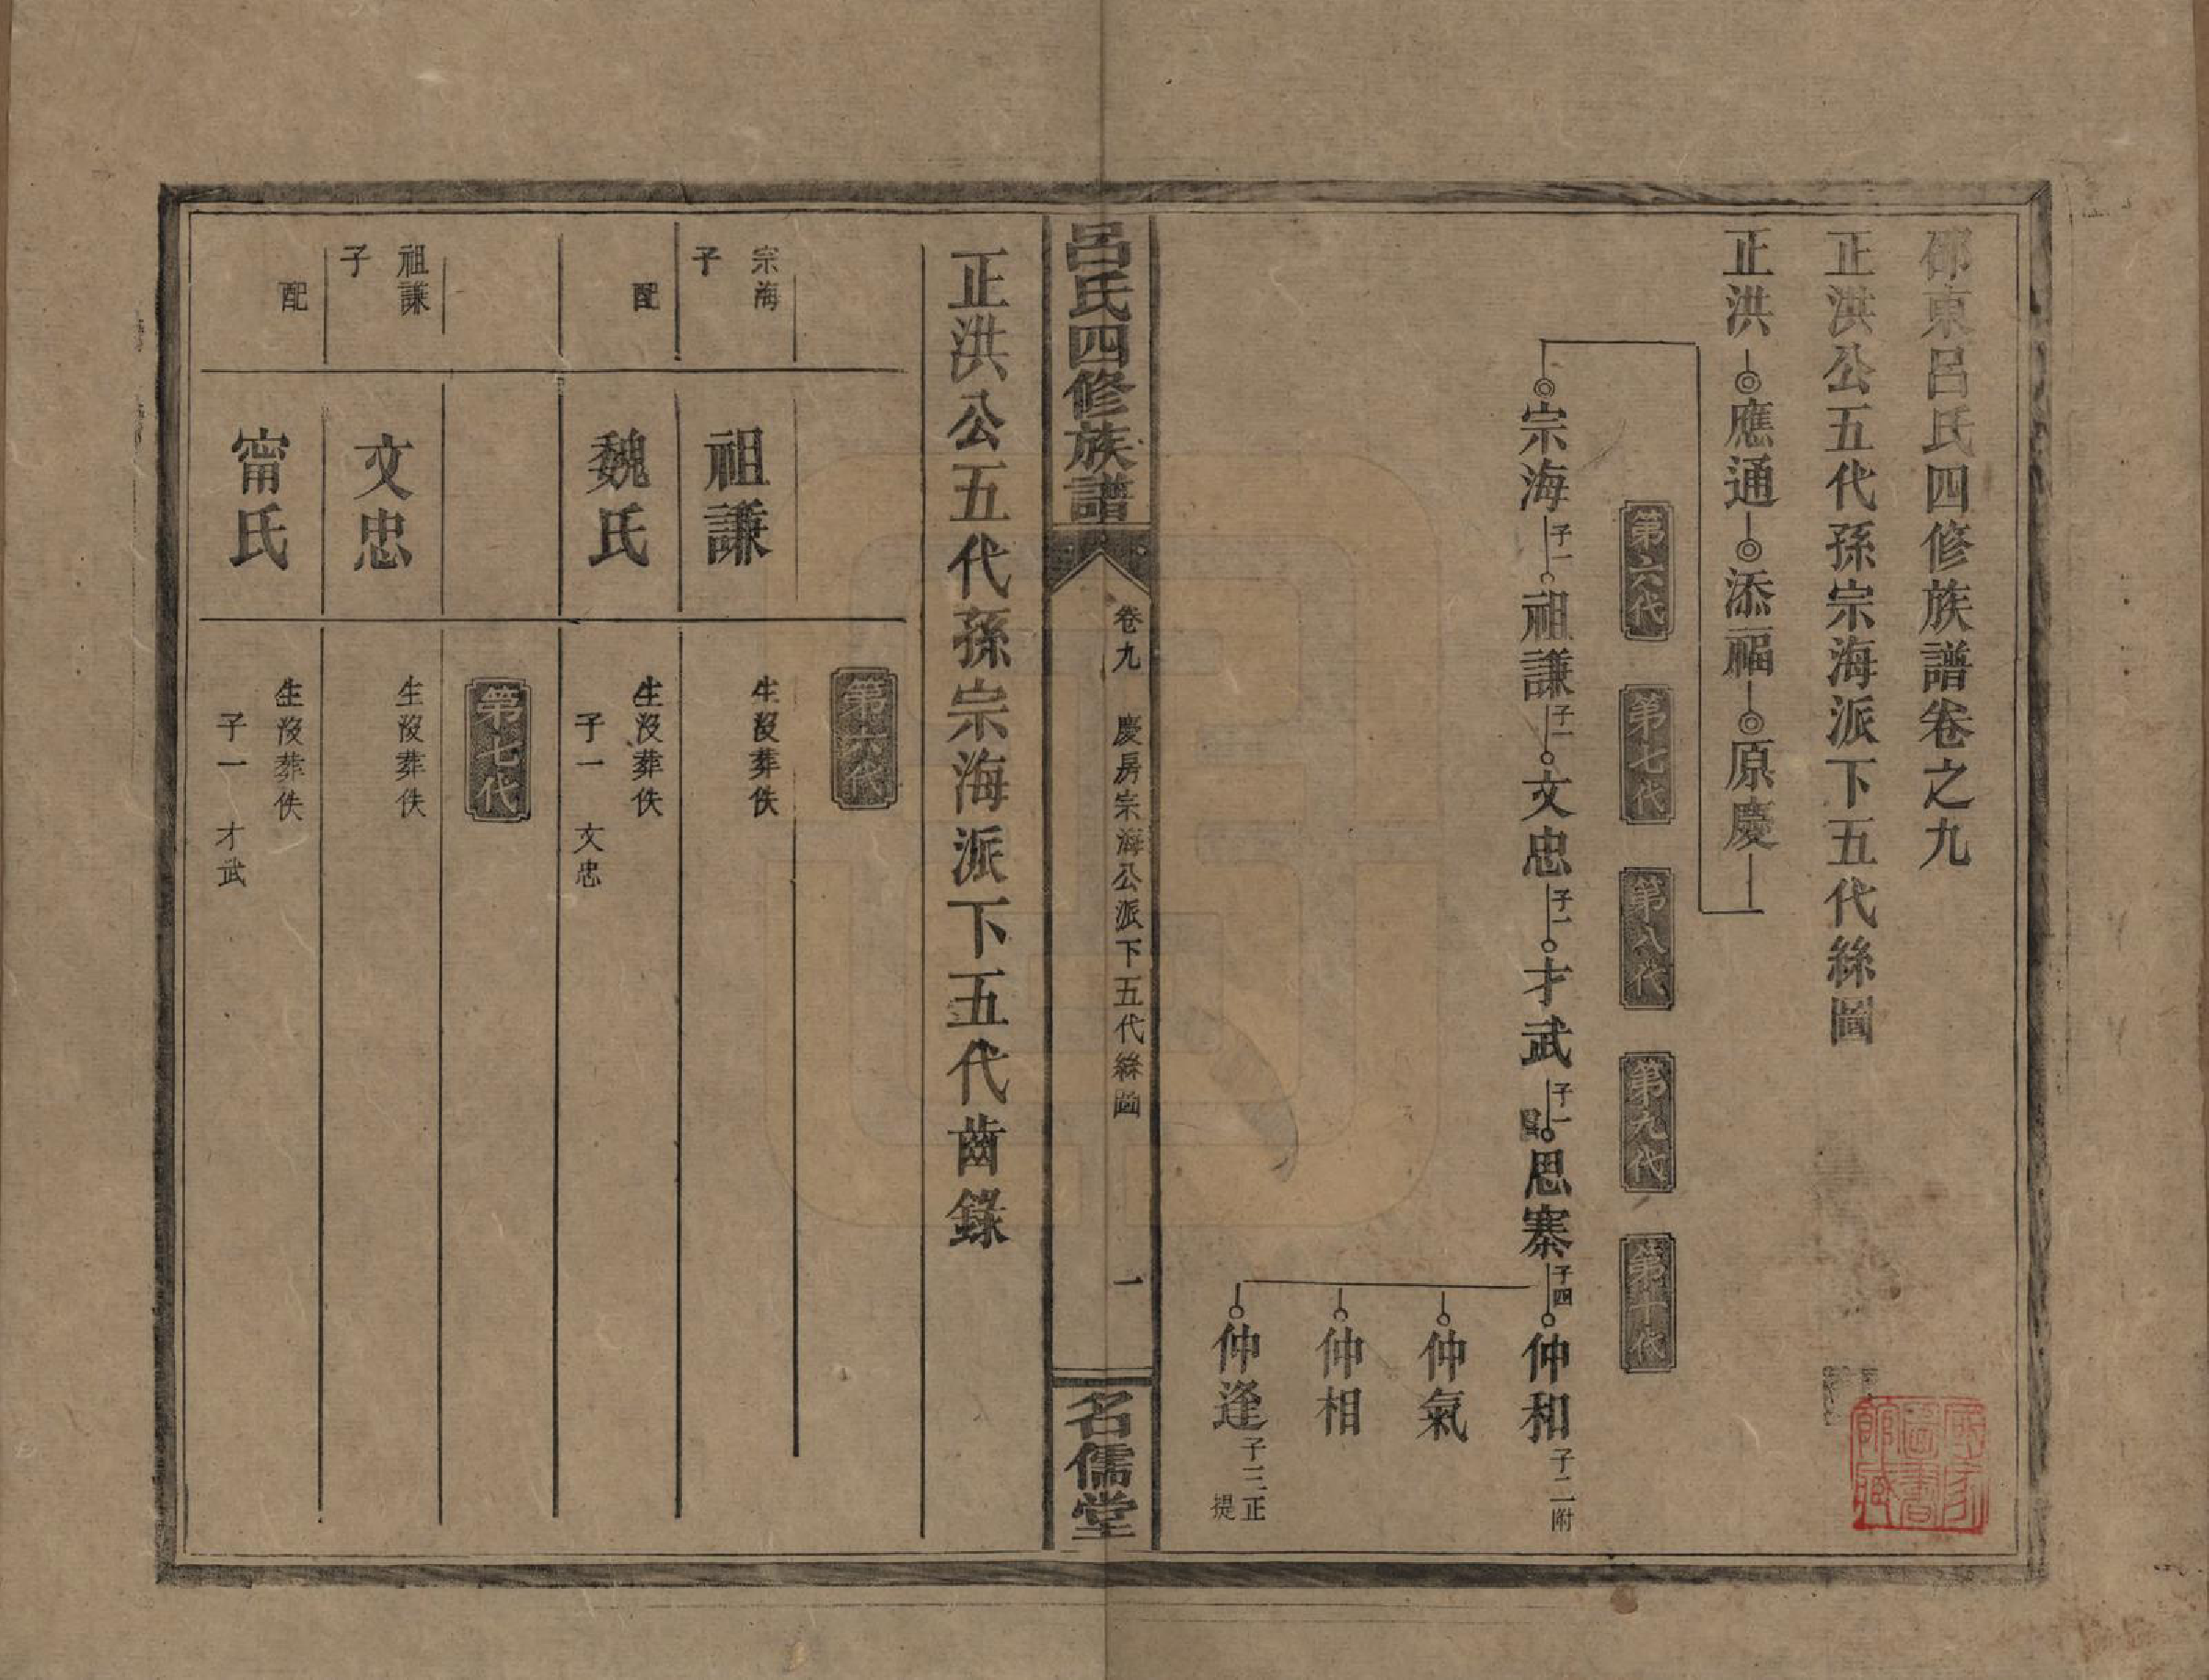 邵東呂氏四修族譜卷之九
正洪公五代孫宗海派下五代絲圖
正洪 應通 添福 原慶
第六代 第七代 第八代 第九代 第十代
宗海 子一 祖謙 子一 文忠 子一 才武 子一 思寨 子四 仲和 子二 附
仲氣
仲相
仲逢 子三 正 提
呂氏四修族譜
卷九 慶房宗海公派下五代絲圖 一
名儒堂
正洪公五代孫宗海派下五代齒錄
第六代
宗海子 祖謙 生沒葬佚
配 魏氏 生沒葬佚
子一 文忠
第七代
祖謙子 文忠 生沒葬佚
配 甯氏 生沒葬佚
子一 才武
國家圖書館藏